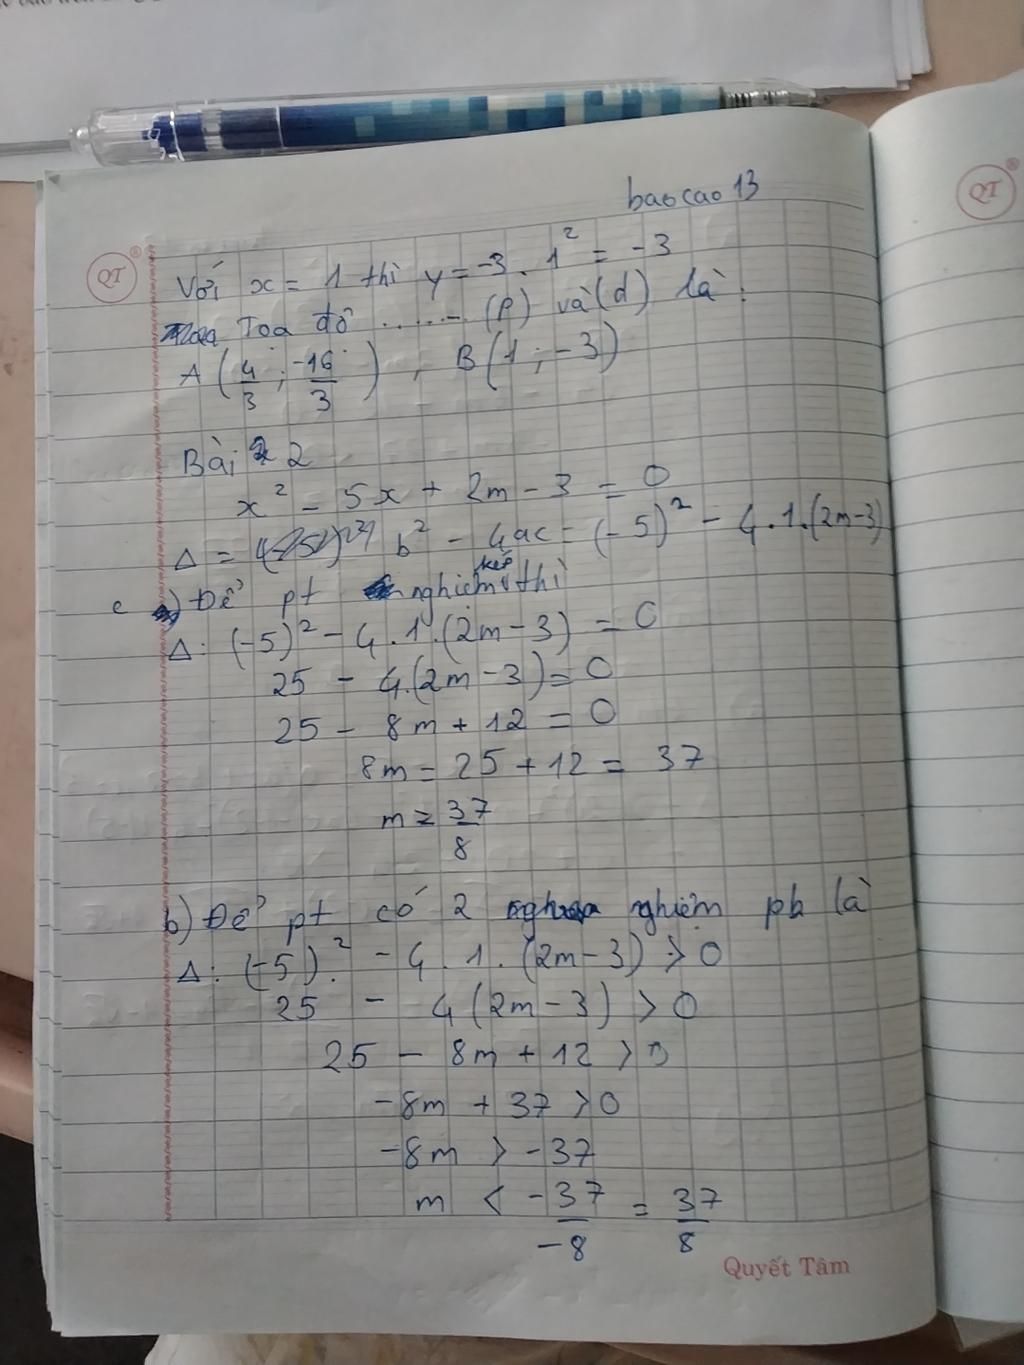 bao cao 13
QT
®
QT
®
Với x = 1 thì y = -3 . 1² = -3
Toạ độ ........ (P) và (d) là :
A ( 4/3 ; -16/3 ) , B ( 1 ; -3 )
Bài 2
x² - 5x + 2m - 3 = 0
Δ = b² - 4ac = (-5)² - 4.1.(2m-3)
c ) Để pt nghiệm kép thì
Δ: (-5)² - 4.1.(2m-3) = 0
25 - 4.(2m-3) = 0
25 - 8m + 12 = 0
8m = 25 + 12 = 37
m = 37/8
b) Để pt có 2 nghiệm pb là
Δ: (-5)² - 4.1.(2m-3) > 0
25 - 4(2m-3) > 0
25 - 8m + 12 > 0
-8m + 37 > 0
-8m > -37
m < -37/-8 = 37/8
Quyết Tâm